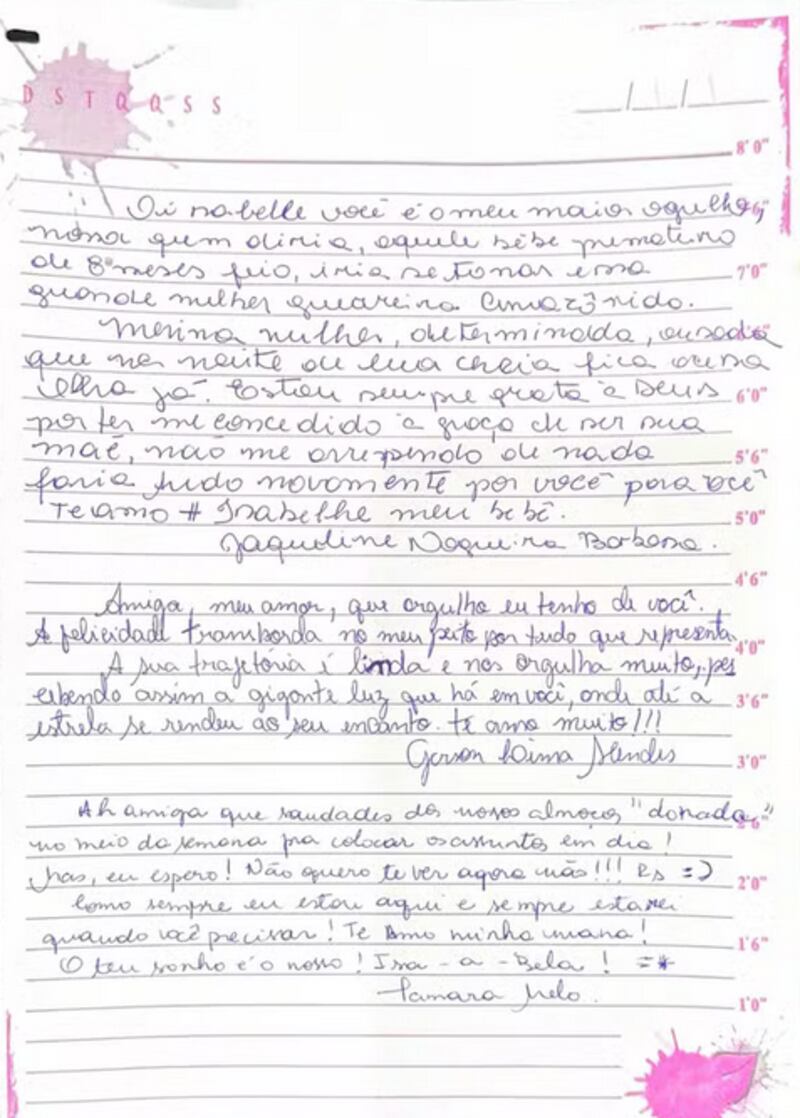 D S T Q Q S S
8'0"
Oi isabelle você é o meu maior ogulho,
nossa quem diria, aquele bêbe prematuro
de 8 meses feio, iria se tonar essa
7'0"
grande mulher guerreira Amazônida.
Menina mulher, determinada, ousada
que na noite de lua cheia fica
Ilha já. Estou sempre grata à Deus
6'0"
por ter me concedido a graça de ser sua
mãe, não me arrependo de nada
5'6"
faria tudo novamente por você para você
Te amo # Isabelhe meu bebê.
5'0"
Jaqueline Nogueira Barbosa.
4'6"
Amiga, meu amor, que orgulho eu tenho de você.
A felicidade transborda no meu peito por tudo que representa.
4'0"
A sua trajetória é linda e nos orgulha muito, per
cebendo assim a gigante luz que há em você, onde até a
3'6"
estrela se rendeu ao seu encanto. te amo muito!!!
Gerson Lima Mendes
3'0"
Ah amiga que saudades dos nosos almoços "donada"
no meio da semana pra colocar os assuntos em dia!
Mas, eu espero! Não quero te ver agora não!!! Rs =)
2'0"
Como sempre eu estou aqui e sempre estarei
quando você precisar! Te Amo minha mana!
1'6"
O teu sonho é o nosso! Isa - a - Bela! =*
Tamara Melo.
1'0"